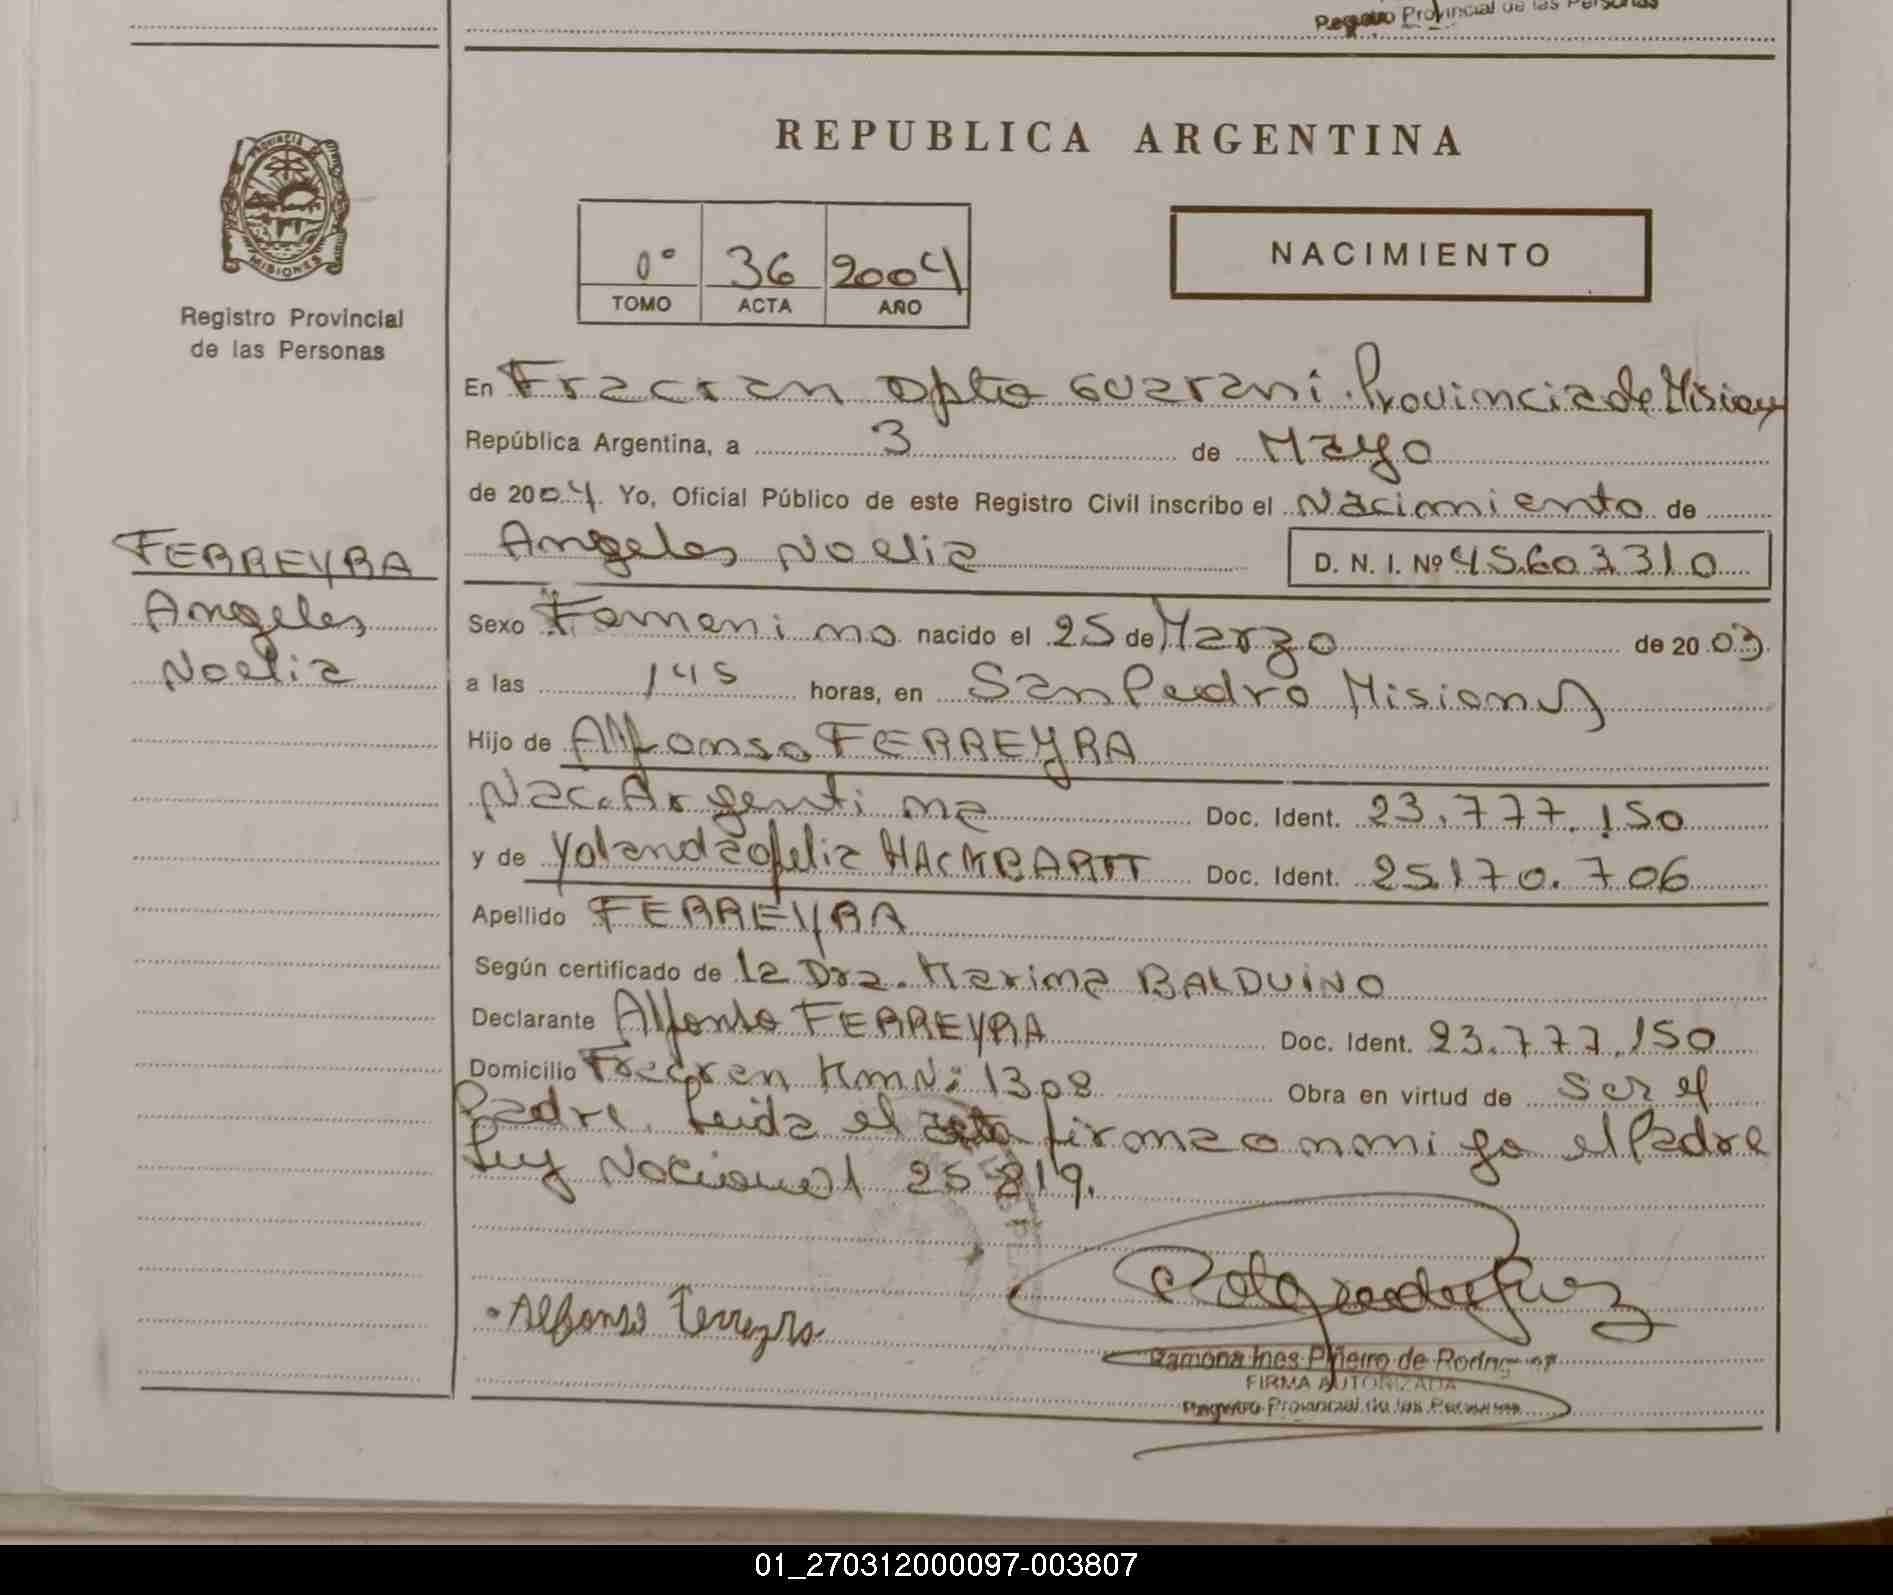 Registro Provincial de las Personas
REPUBLICA ARGENTINA
PROVINCIA
MISIONES
Registro Provincial
de las Personas
0° 36 2004
TOMO ACTA AÑO
NACIMIENTO
En Fracran Dpto Guarani. Provincia de Misiones
República Argentina, a 3 de Mayo
de 2004. Yo, Oficial Público de este Registro Civil inscribo el Nacimiento de
Angeles Noelia D. N. I. Nº 45.603.310
FERREYRA
Angeles
Noelia
Sexo Femenino nacido el 25 de Marzo de 2003
a las 145 horas, en San Pedro Misiones
Hijo de Alfonso FERREYRA
Nac. Argentina Doc. Ident. 23.777.150
y de Yolanda Ofelia HACKBARTT Doc. Ident. 25.170.706
Apellido FERREYRA
Según certificado de la Dra. Marina BALDUINO
Declarante Alfonso FERREYRA Doc. Ident. 23.777.150
Domicilio Fracran Km Nº 1308 Obra en virtud de ser el
Padre. Leida el acta firma conmigo el Padre
Ley Nacional 25.819.
Alfonso Ferreyra
Ramona Ines Piñeiro de Rodriguez
FIRMA AUTORIZADA
Registro Provincial de las Personas
01_270312000097-003807